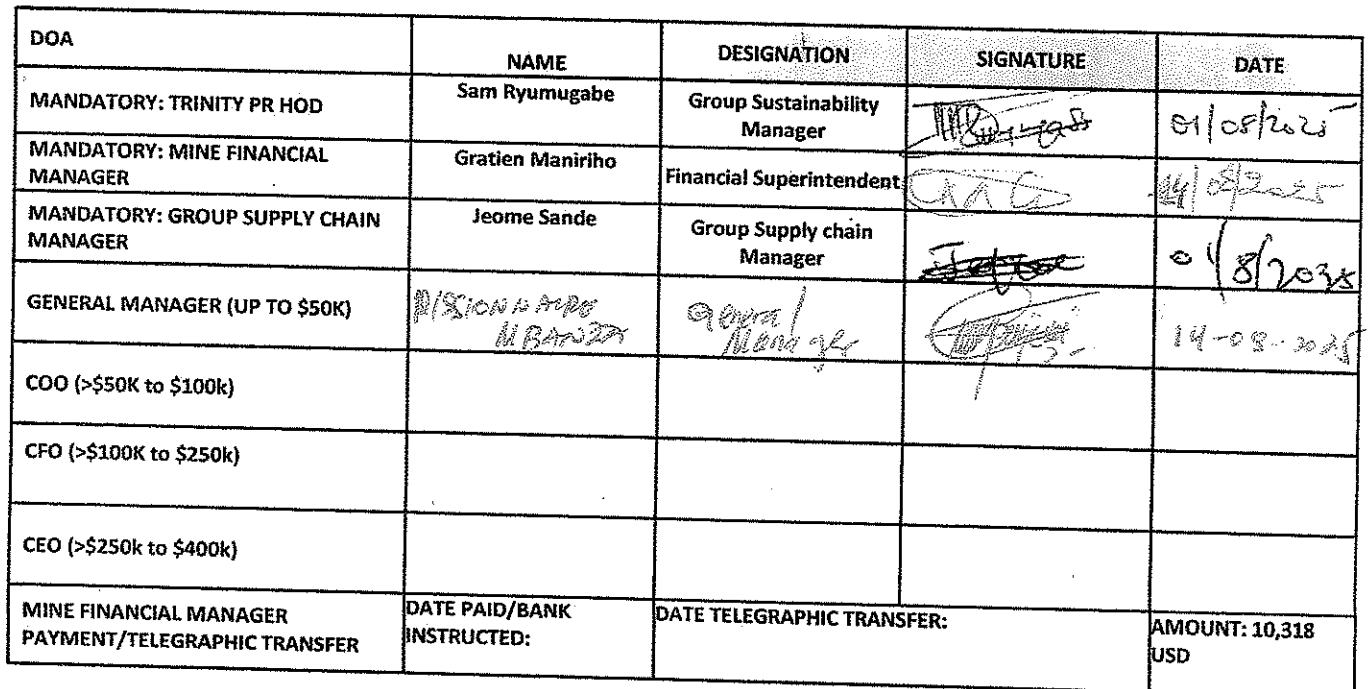 DOA
NAME
DESIGNATION
SIGNATURE
DATE
MANDATORY: TRINITY PR HOD
Sam Ryumugabe
Group Sustainability
Manager
01/08/2025
MANDATORY: MINE FINANCIAL
MANAGER
Gratien Maniriho
Financial Superintendent
14/08/2025
MANDATORY: GROUP SUPPLY CHAIN
MANAGER
Jeome Sande
Group Supply chain
Manager
GENERAL MANAGER (UP TO $50K)
MBANZA
General
Manager
14-08-2025
COO (>$50K to $100k)
CFO (>$100K to $250k)
CEO (>$250k to $400k)
MINE FINANCIAL MANAGER
PAYMENT/TELEGRAPHIC TRANSFER
DATE PAID/BANK
INSTRUCTED:
DATE TELEGRAPHIC TRANSFER:
AMOUNT: 10,318
USD